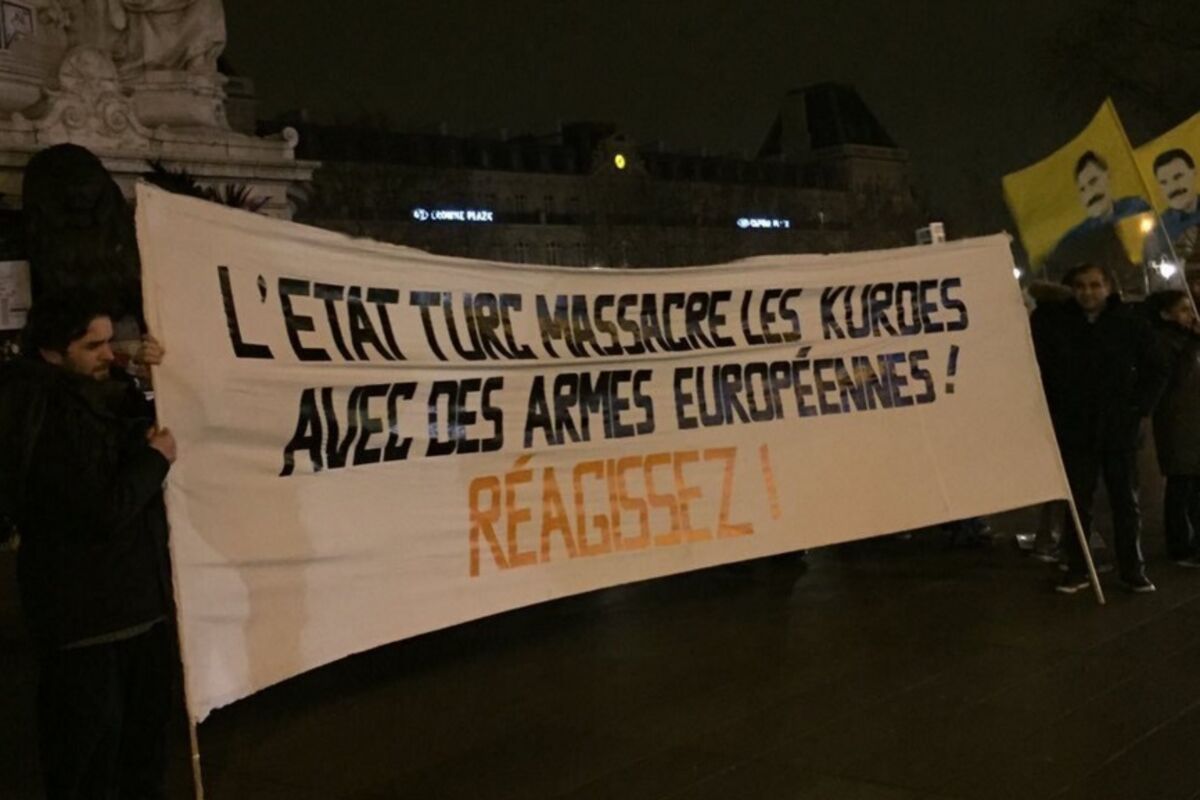 L'ETAT TURC MASSACRE LES KURDES
AVEC DES ARMES EUROPÉENNES !
RÉAGISSEZ !
CROWNE PLAZA
CROWNE PLAZA